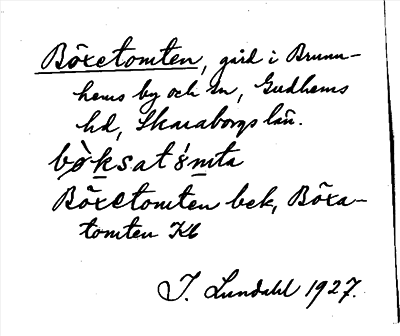 Böxetomten, gård i Brunn-
hems by och sn, Gudhems
hd, Skaraborgs län.
bø̀ksat8̍mta
Böxetomten bek, Böxa-
tomten Kb
I. Lundahl 1927.